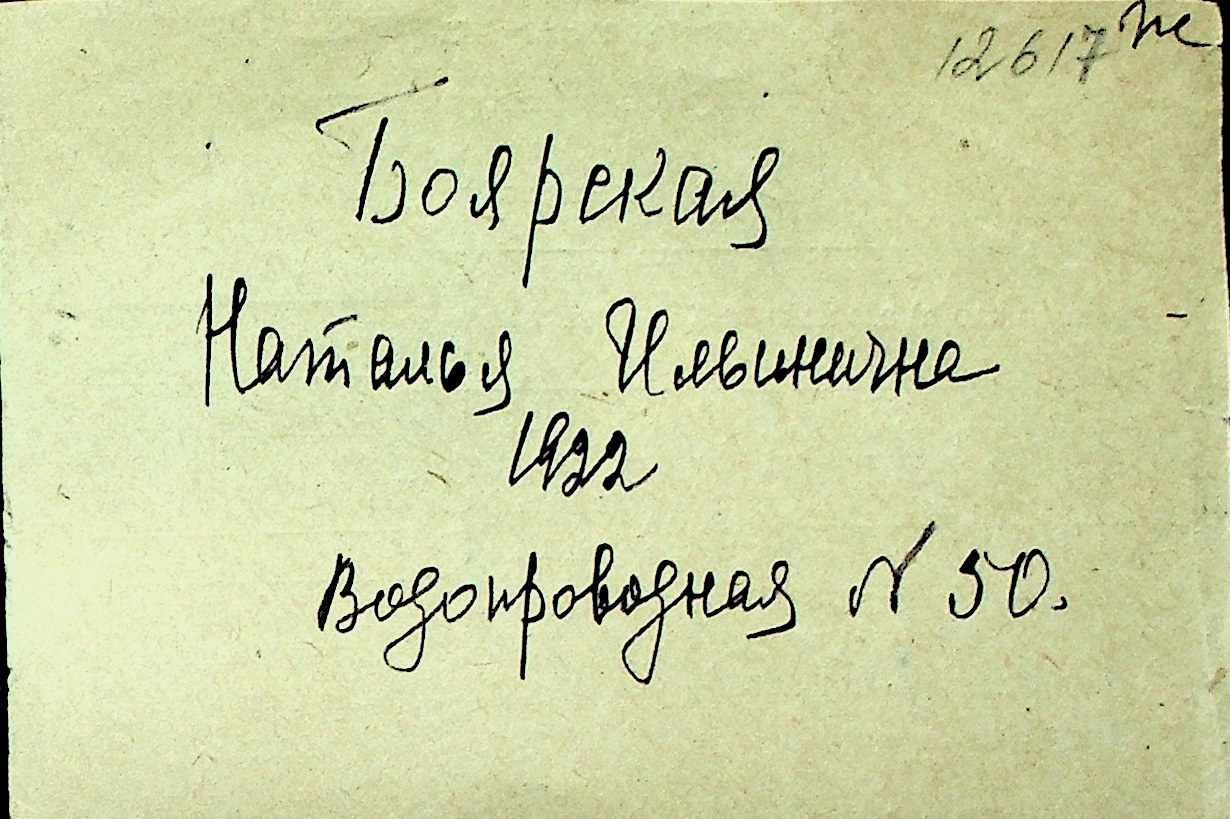 12617 ж
Боярская
Наталья Ильинична
1922
Водопроводная № 50.